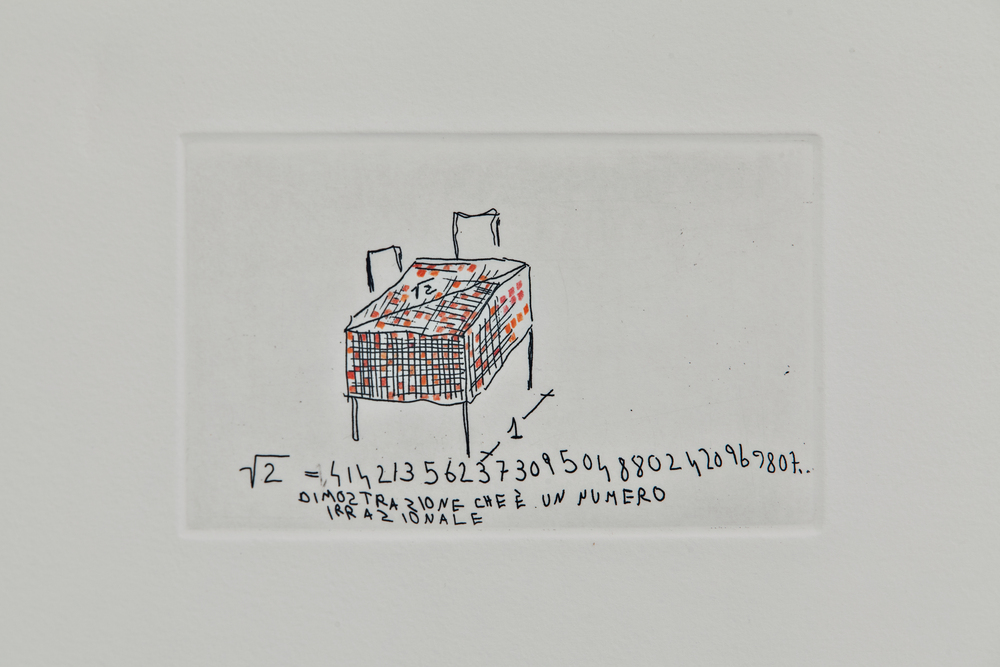 √2
1
√2 = 1,414213562373095048802420969807..
DIMOSTRAZIONE CHE È UN NUMERO
IRRAZIONALE